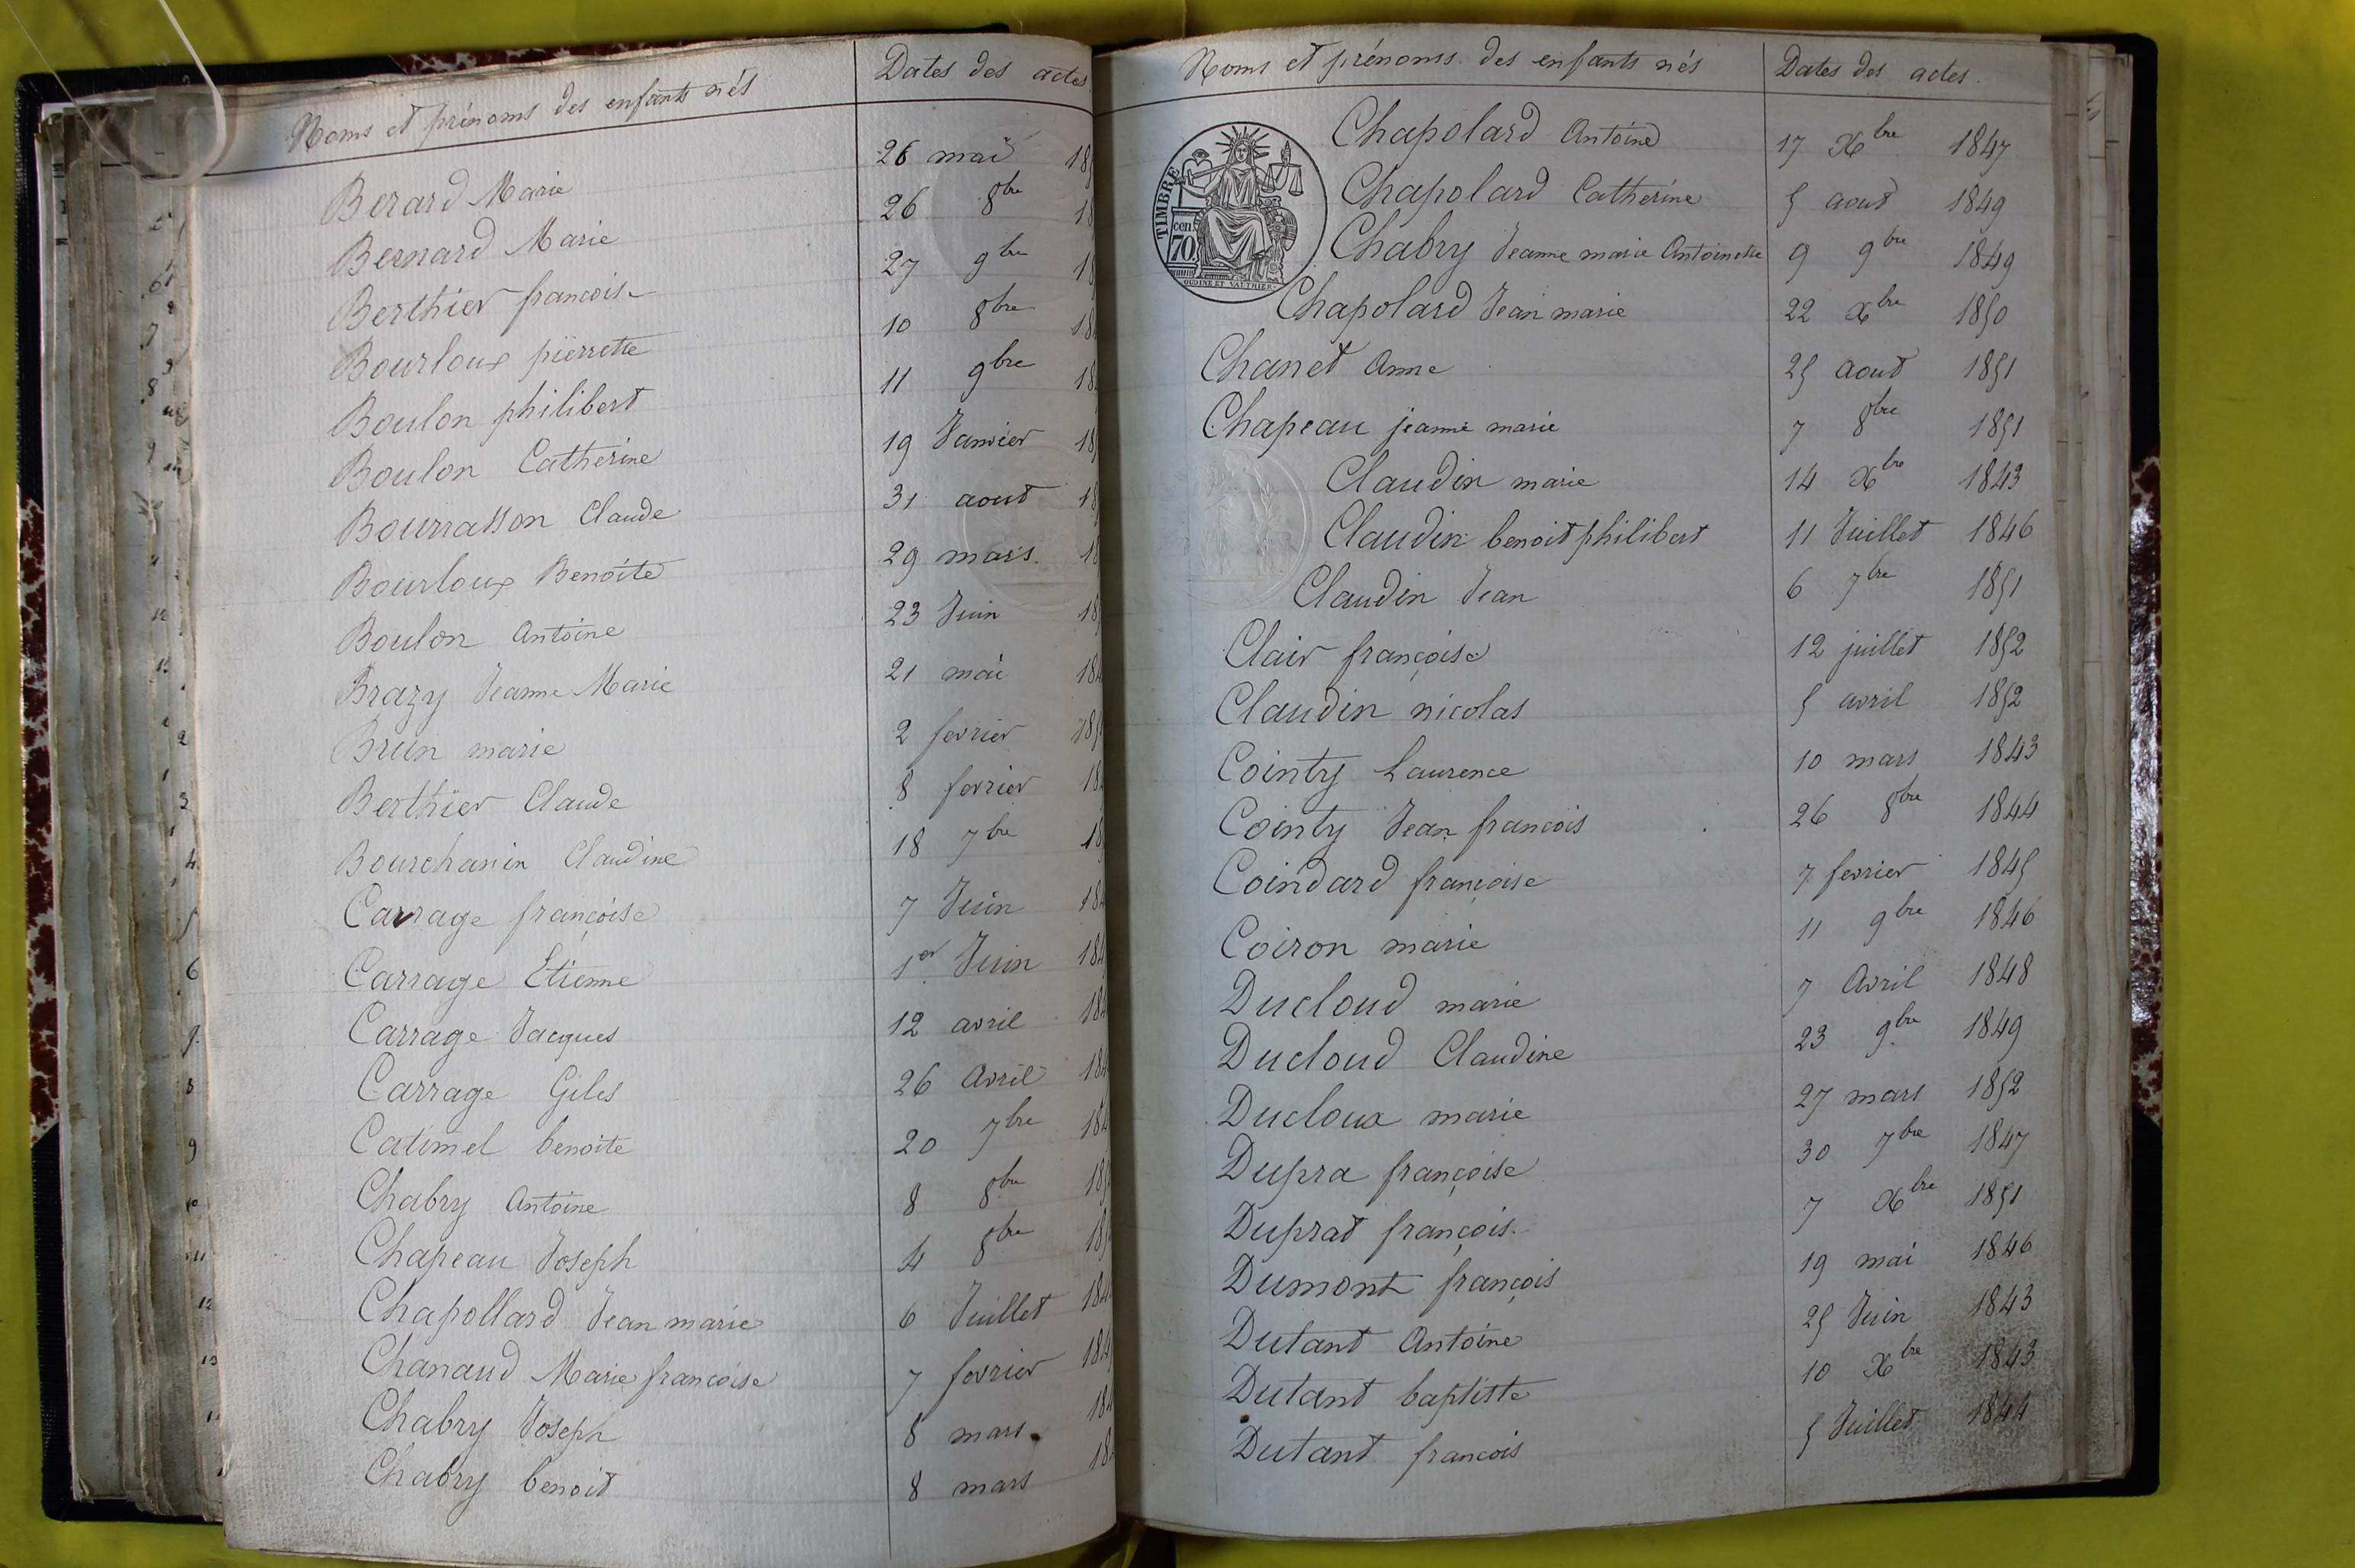 Noms et prénoms des enfants nés Dates des actes
Berard Marie 26 mai
Bernard Marie 26 8bre
Berthier francoise 27 9bre
Bourloux pierrette 10 8bre
Boulon philibert 11 9bre
Boulon Catherine 19 Janvier
Bourrasson Claude 31 aout
Bourloux Benoite 29 mars
Boulon Antoine 23 Juin
Brazy Jeanne Marie 21 mai
Brun marie 2 fevrier
Berthier Claude 8 fevrier
Bourchanin Claudine 18 7bre
Carrage françoise 7 Juin
Carrage Etienne 1er Juin
Carrage Jacques 12 avril
Carrage Giles 26 Avril
Catimel benoite 20 7bre
Chabry Antoine 8 8bre
Chapeau Joseph 4 8bre
Chapollard Jean marie 6 Juillet
Chanaud Marie francoise 7 fevrier
Chabry Joseph 8 mars
Chabry benoit 8 mars
Noms et prénoms des enfants nés Dates des actes.
TIMBRE
cen.
70.
OUDINÉ ET VAUTHIER
Chapolard Antoine 17 Xbre 1847
Chapolard Catherine 5 aout 1849
Chabry Jeanne marie Antoinette 9 9bre 1849
Chapolard Jean marie 22 Xbre 1850
Chanet Anne 25 aout 1851
Chapeau jeanne marie 7 8bre 1851
Claudin marie 14 Xbre 1843
Claudin benoit philibert 11 Juillet 1846
Claudin Jean 6 7bre 1851
Clair françoise 12 juillet 1852
Claudin nicolas 5 avril 1852
Cointy Laurence 10 mars 1843
Cointy Jean francois 26 8bre 1844
Coindard françoise 7 fevrier 1845
Coiron marie 11 9bre 1846
Ducloud marie 7 Avril 1848
Ducloud Claudine 23 9bre 1849
Ducloux marie 27 mars 1852
Dupra françoise 30 7bre 1847
Duprat françois. 7 Xbre 1851
Dumont françois 19 mai 1846
Dutant Antoine 25 Juin 1843
Dutant baptiste 10 Xbre 1843
Dutant francois 5 Juillet 1844